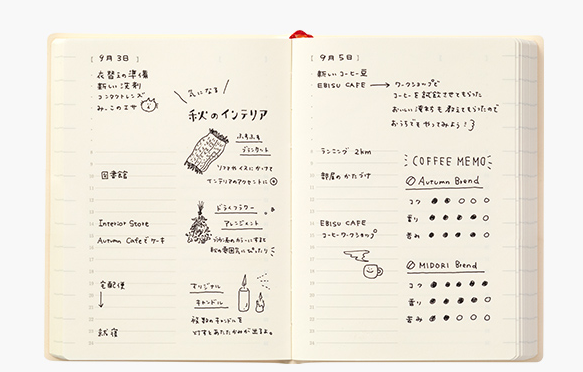 [ 9月3日 ]
・衣替えの準備
・新しい洗剤
・コンタクトレンズ
・みーこのエサ
図書館
Interior Store
Autumn Cafeでケーキ
宅配便
就寝
気になる
秋のインテリア
ふわふわ
ブランケット
ソファやイスにかけて
インテリアのアクセントに
ドライフラワー
アレンジメント
秋の雰囲気にぴったり
オリジナル
キャンドル
複数のキャンドルを
灯すとあたたかみが出るよ。
[ 9月5日 ]
・新しいコーヒー豆
EBISU CAFE → ワークショップで
コーヒーを試飲させてもらった
おいしい淹れ方も教えてもらったので
おうちでもやってみよう!
ランニング 2km
部屋のかたづけ
EBISU CAFE
コーヒーワークショップ
COFFEE MEMO
Autumn Blend
コク
香り
苦み
MIDORI Blend
コク
香り
苦み